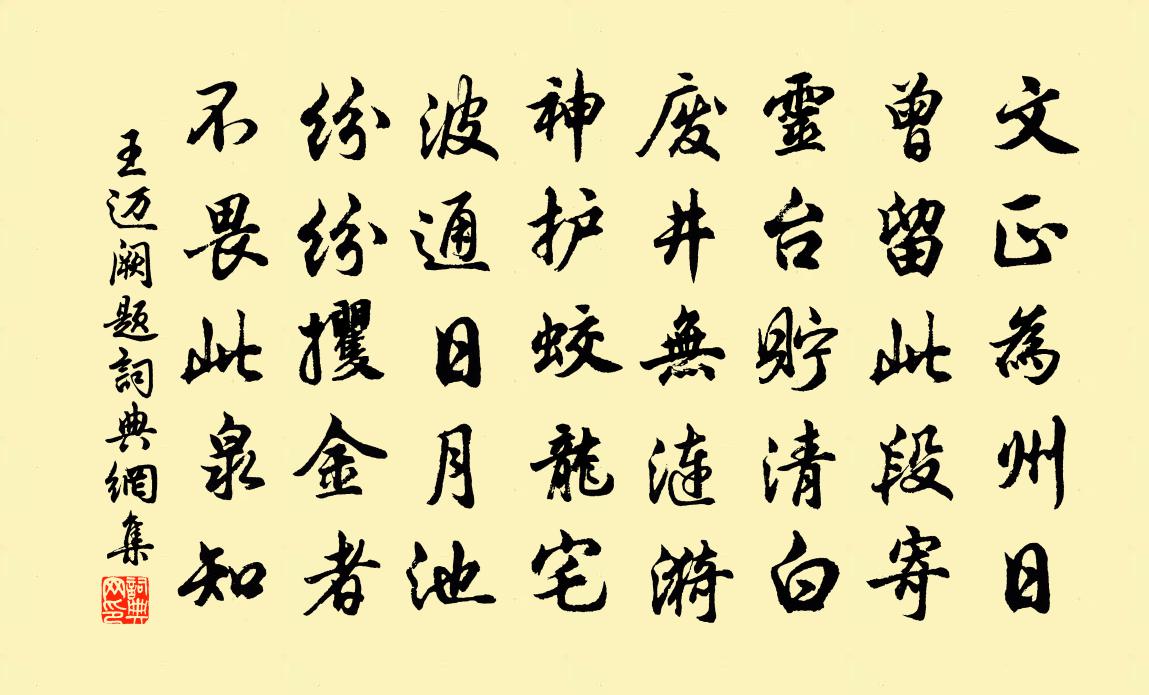 文正為州日
曾留此段寄
靈台貯清白
废井無漣漪
神护蛟龍宅
波通日月池
纷纷攫金者
不畏此泉知
王迈阙题詞典網集
詞典网印